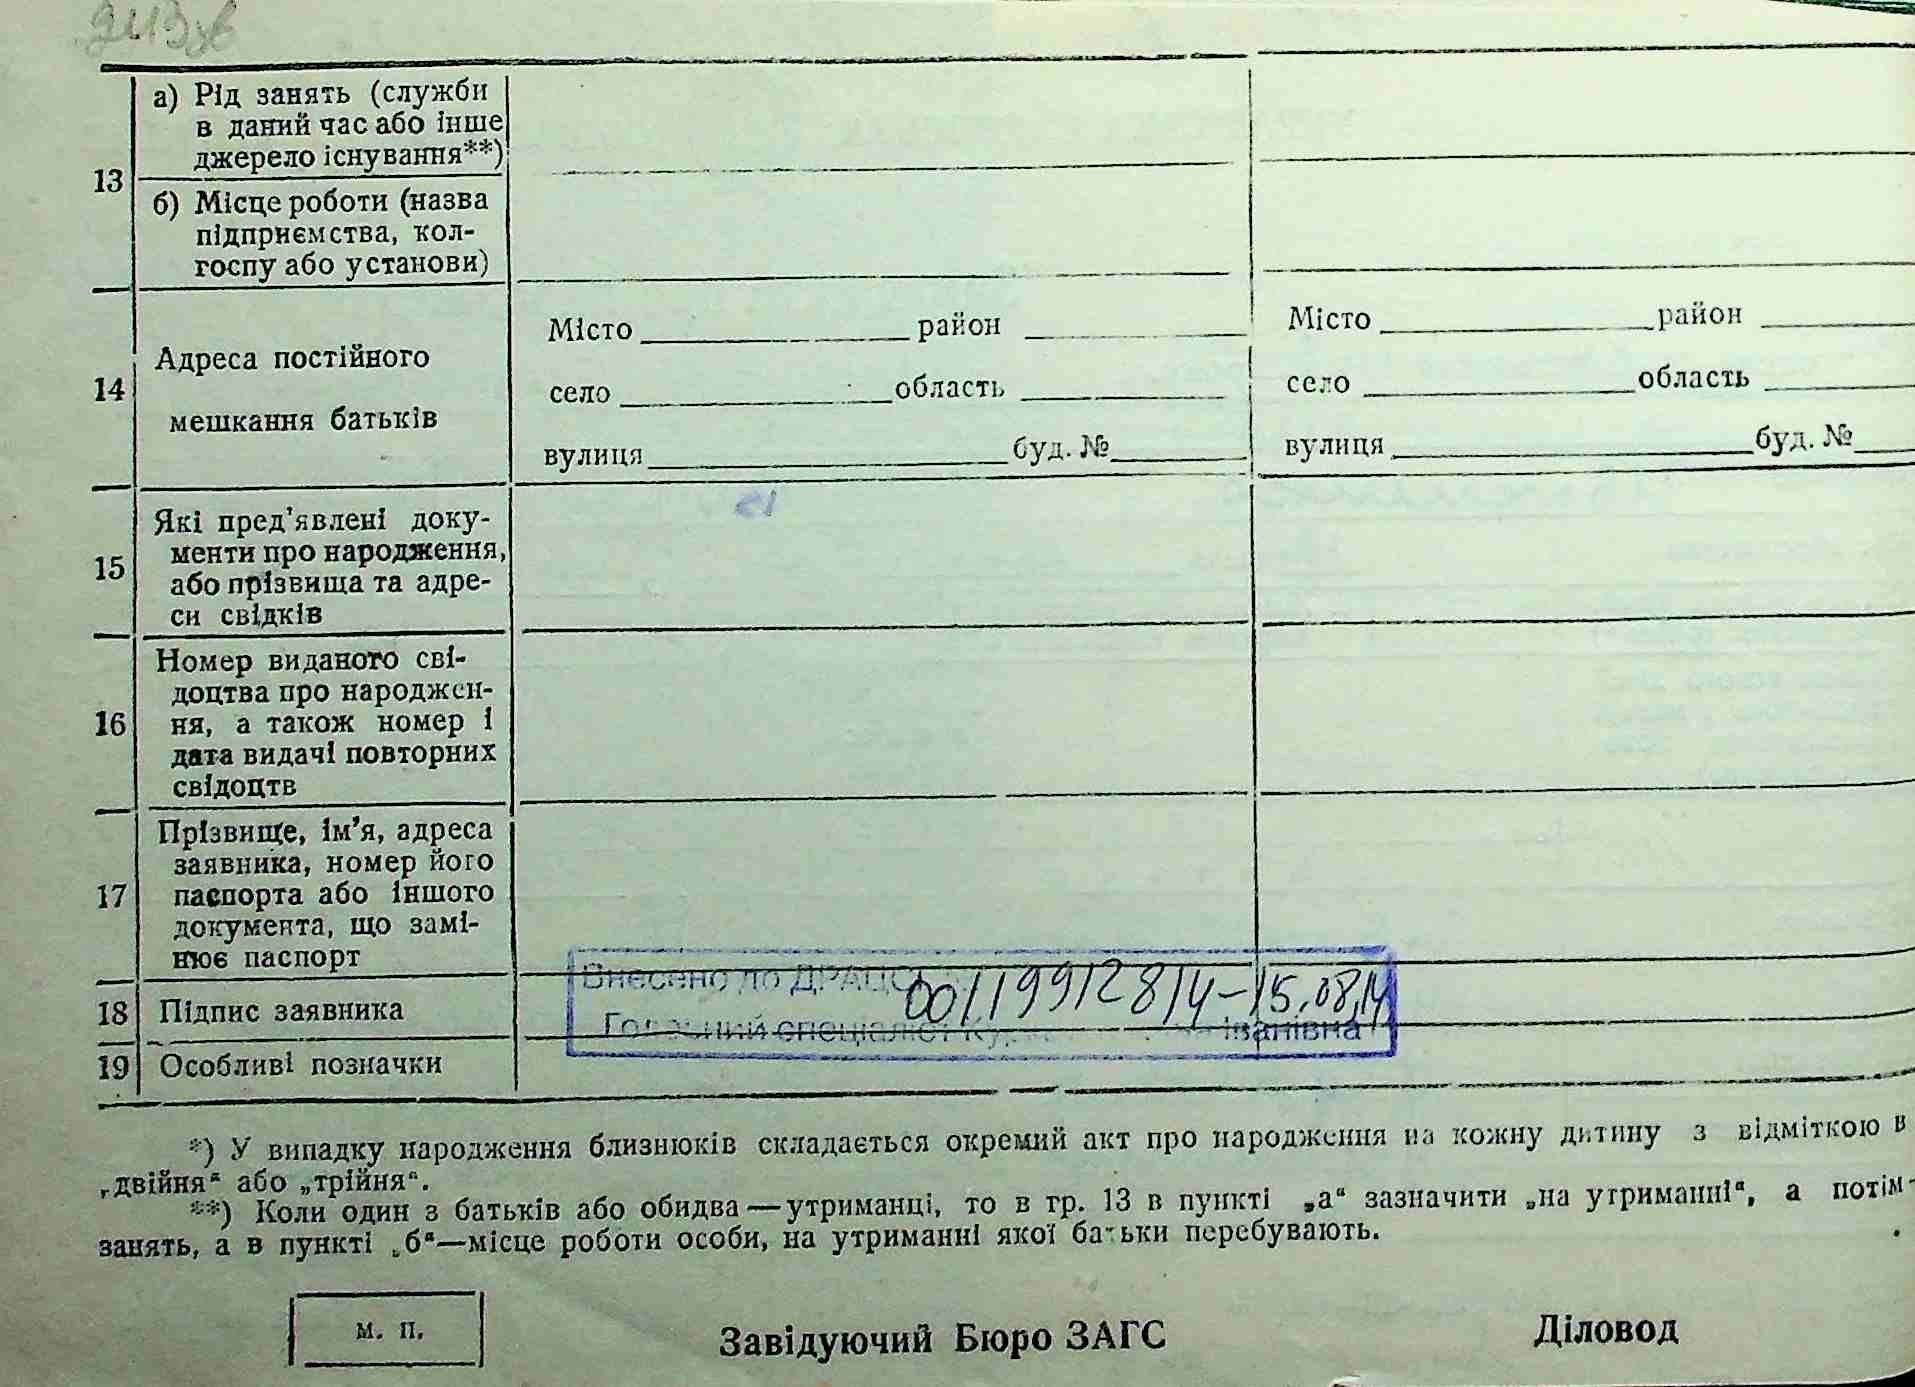 13
а) Рід занять (служби
в даний час або інше
джерело існування**)
б) Місце роботи (назва
підприємства, кол-
госпу або установи)
14
Адреса постійного
мешкання батьків
Місто район
село область
вулиця буд. №
Місто район
село область
вулиця буд. №
15
Які пред'явлені доку-
менти про народження,
або прізвища та адре-
си свідків
16
Номер виданого сві-
доцтва про народжен-
ня, а також номер і
дата видачі повторних
свідоцтв
17
Прізвище, ім'я, адреса
заявника, номер його
паспорта або іншого
документа, що замі-
нює паспорт
18 Підпис заявника
19 Особливі позначки
Внесено до ДРАЦС 00119912814-15.08.14
Головний спеціаліст Іванівна
*) У випадку народження близнюків складається окремий акт про народження на кожну дитину з відміткою в
„двійня“ або „трійня“.
**) Коли один з батьків або обидва—утриманці, то в гр. 13 в пункті „а“ зазначити „на утриманні“, а потім-
занять, а в пункті „б“—місце роботи особи, на утриманні якої батьки перебувають.
м. п.
Завідуючий Бюро ЗАГС
Діловод